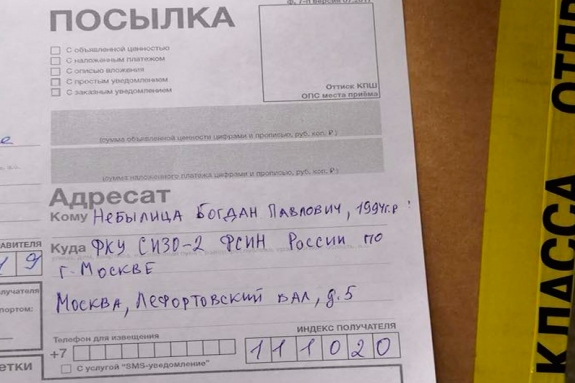 ф. 7-п
ПОСЫЛКА
С объявленной ценностью
С наложенным платежом
С описью вложения
С простым уведомлением
С заказным уведомлением
Оттиск КПШ
ОПС места приёма
(сумма объявленной ценности цифрами и прописью, руб. коп. ₽)
(сумма наложенного платежа цифрами и прописью, руб. коп. ₽)
Адресат
Кому Небылица Богдан Павлович, 1994г.р.
АВИТЕЛЯ
Куда ФКУ СИЗО-2 ФСИН России по
19
г. Москве
олучателя
Москва, Лефортовский вал, д.5
портом:
Телефон для извещения
ИНДЕКС ПОЛУЧАТЕЛЯ
+7
111020
С услугой "SMS-уведомление"
ЕТКИ
КЛАССА ОТПР